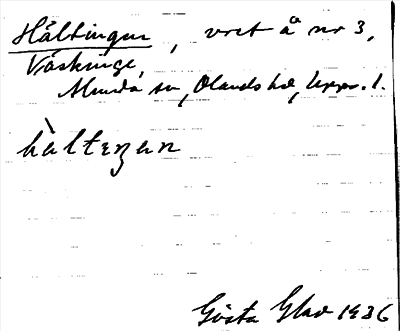 Håltingen, vret å nr 3,
Väskinge,
Almunda sn, Olands hd, Upps. l.
hàlteŋen
Gösta Glad 1936